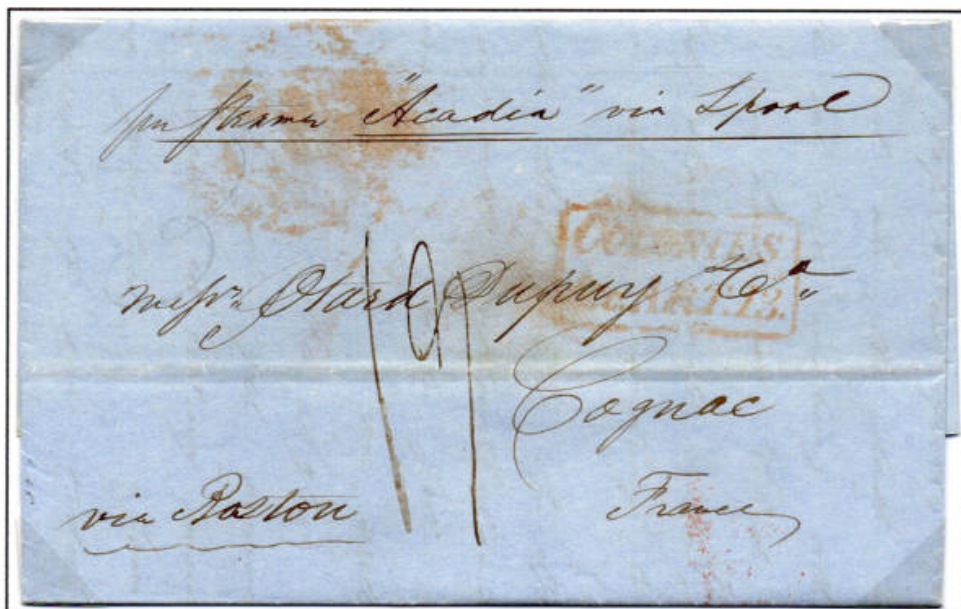 per Steamer "Acadia" via Lpool
COLONIES
&c. ART. 13.
Messrs Otard Dupuy & Co
Cognac
France
via Boston